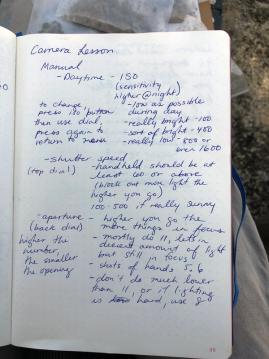 Camera Lesson
Manual
- Daytime - ISO
(sensitivity
higher @ night)
to change - low as possible
press iso button during day
then use dial, - really bright - 100
press again to - sort of bright - 400
return to menu - really low - 800 or
even 1600
- shutter speed
(top dial) - handheld should be at
least 60 or above
(block out more light the
higher you go)
100, 500 if really sunny
- aperture - higher you go the
(back dial) more things in focus
higher the - mostly do 11, lets in
number, decent amount of light
the smaller but still in focus
the opening - shots of hands 5.6
- don't do much lower
than 11, or if lighting
is hard, use 8